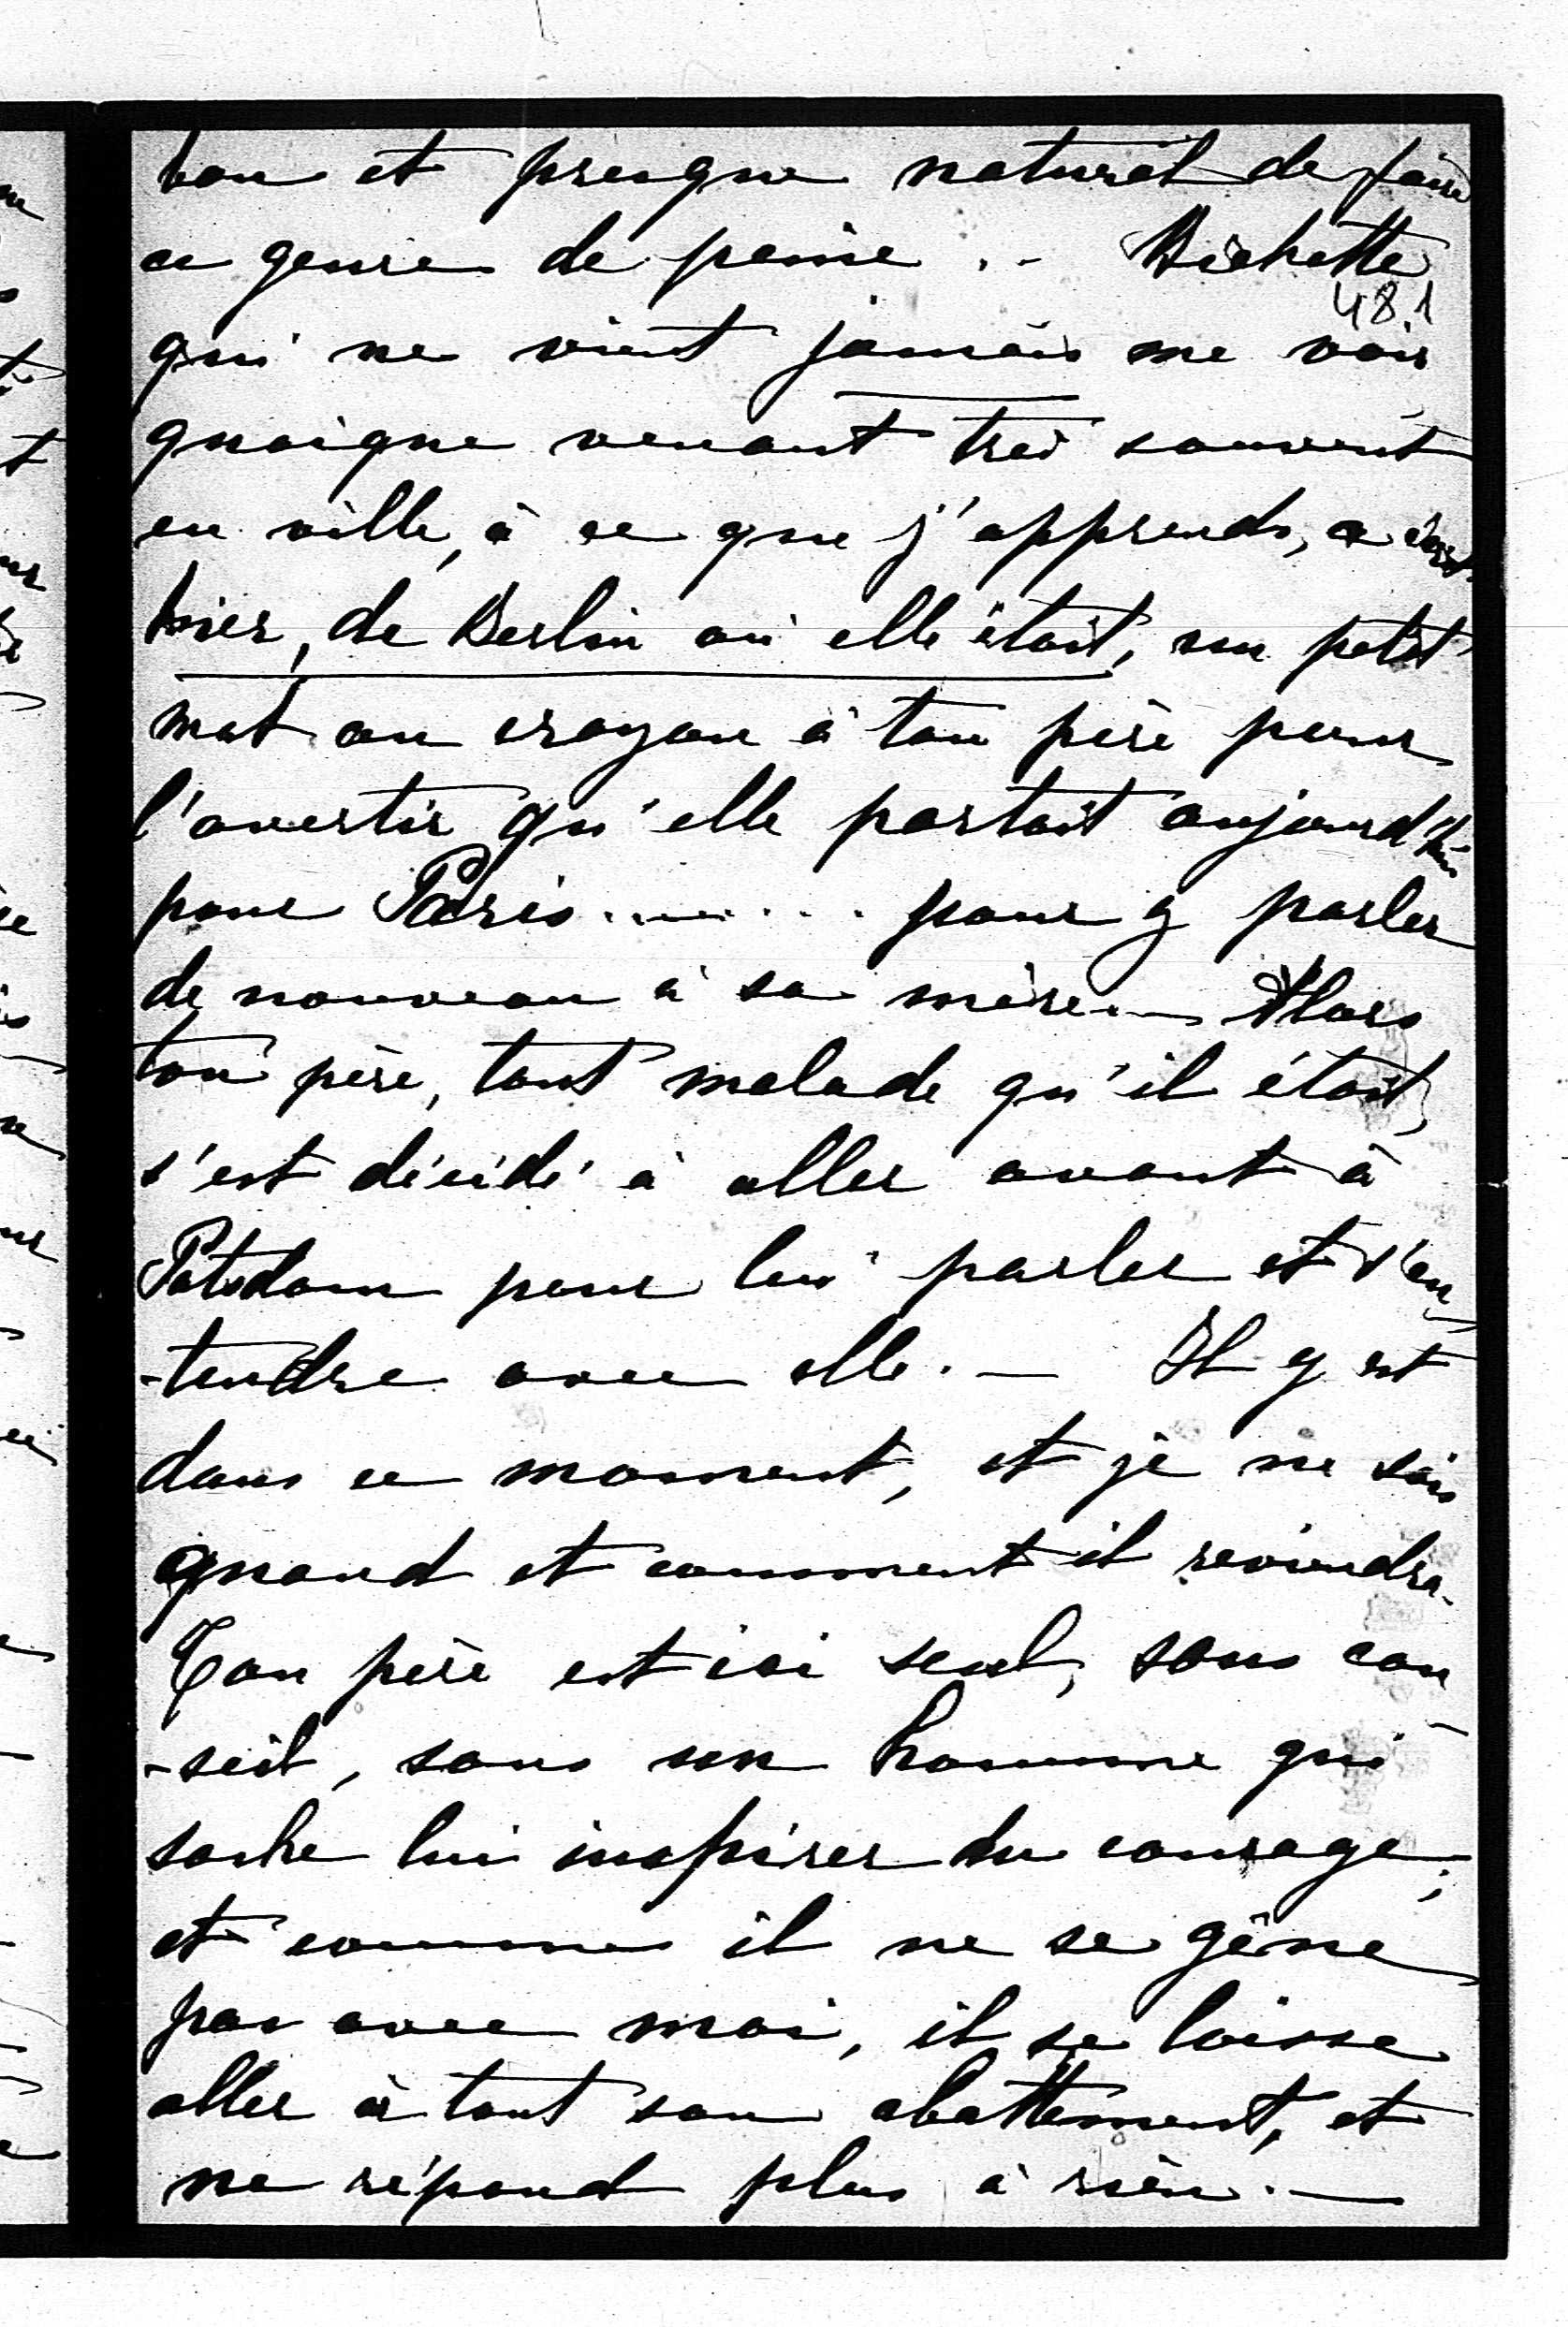 bon et presque naturel de faire
ce genre de peine .. Bichette
481
qui ne vient jamais me voir
quoique venant très souvent
en ville, à ce que j'apprends, a écrit
hier, de Berlin où elle était, un petit
mot au crayon à ton père pour
l'avertir qu'elle partait aujourd'hui
pour Paris ........ pour y parler
de nouveau à sa mère.— Alors
ton père, tout malade qu'il était,
s'est décidé à aller avant à
Potsdam pour lui parler et s'en-
-tendre avec elle. — Il y est
dans ce moment, et je ne sais
quand et comment il reviendra.
Ton père est ici seul, sans con
-seil, sans un homme qui
sache lui inspirer du courage;
et comme il ne se gêne
pas avec moi, il se laisse
aller à tout son abattement, et
ne répond plus à rien. —